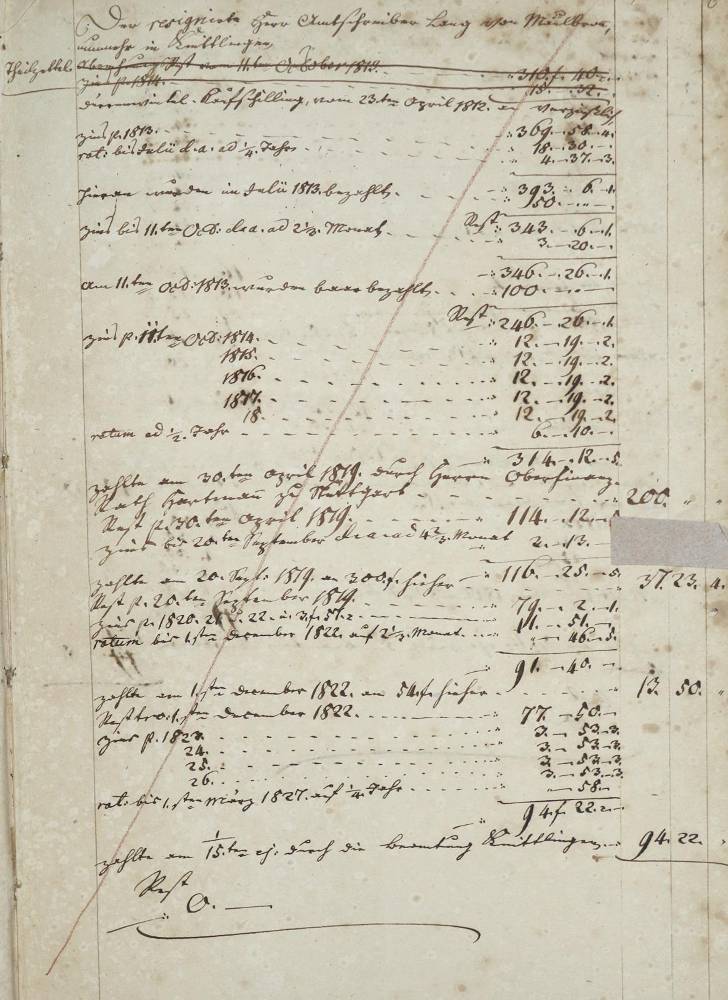 Der resignirte Herr Amtschreiber Lang von Maulbronn,
nunmehr in Knittlingen
Theilzettel. Rest vom 11.ten October 1813. 310.f. 40.
Zins p. 1814. 15. 32.
Kaufschilling, vom 23.ten April 1812. an
Zins p. 1813. 369. 58. 4.
18. 30.
rat. bis Julii d. a. ad 1/4. Jahr 4. 37. 3.
393. 6. 1.
hieran wurden in Julii 1813. bezahlt. 50.
Rest 343. 6. 1.
Zins bis 11.ten Oct. d. a. ad 2 1/2. Monat 3. 20.
346. 26. 1.
am 11.ten Oct. 1813. wurden baar bezahlt. 100.
Rest 246. 26. 1.
Zins p. 11.ten Oct. 1814. 12. 19. 2.
1815. 12. 19. 2.
1816. 12. 19. 2.
1817. 12. 19. 2.
18. 12. 19. 2.
ratum ad 1/2. Jahr 6. 10.
314. 12. 5.
zahlte am 30.ten April 1819. durch Herrn Oberfinanz-
Rath Hartmann zu Stuttgart 200.
Rest p. 30.ten April 1819. 114. 12. 5
Zins bis 20.ten September d. a. ad 4 2/3. Monat 2. 13.
116. 25. 5.
zahlte am 20. Sept. 1819. an 300f. hieher 37. 23. 4.
Rest p. 20.ten September 1819. 79. 2. 1.
Zins p. 1820. 21. u. 22. à 3.f. 57. 2 11. 51.
ratum bis 1.sten December 1822. auf 2 1/2. Monat. 46. 5.
91. 40.
zahlte am 1.sten December 1822. an 54.f. hieher 13. 50.
Rest 1.sten December 1822. 77. 50.
Zins p. 1823. 3. 53. 3.
24. 3. 53. 3.
25. 3. 53. 3.
26. 3. 53. 3.
rat. bis 1.sten März 1827. auf 1/4. Jahr 58.
94.f. 22.
zahlte am 15.ten ej. durch die Beamtung Knittlingen 94. 22.
Rest
0.